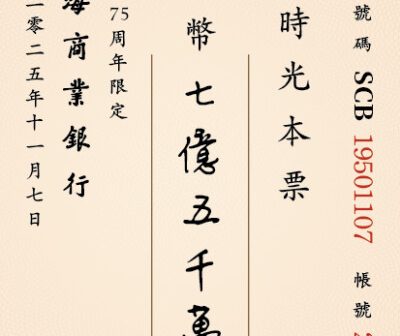 號碼 SCB 19501107 帳號
時光本票
幣七億五千萬
75周年限定
海商業銀行
二零二五年十一月七日